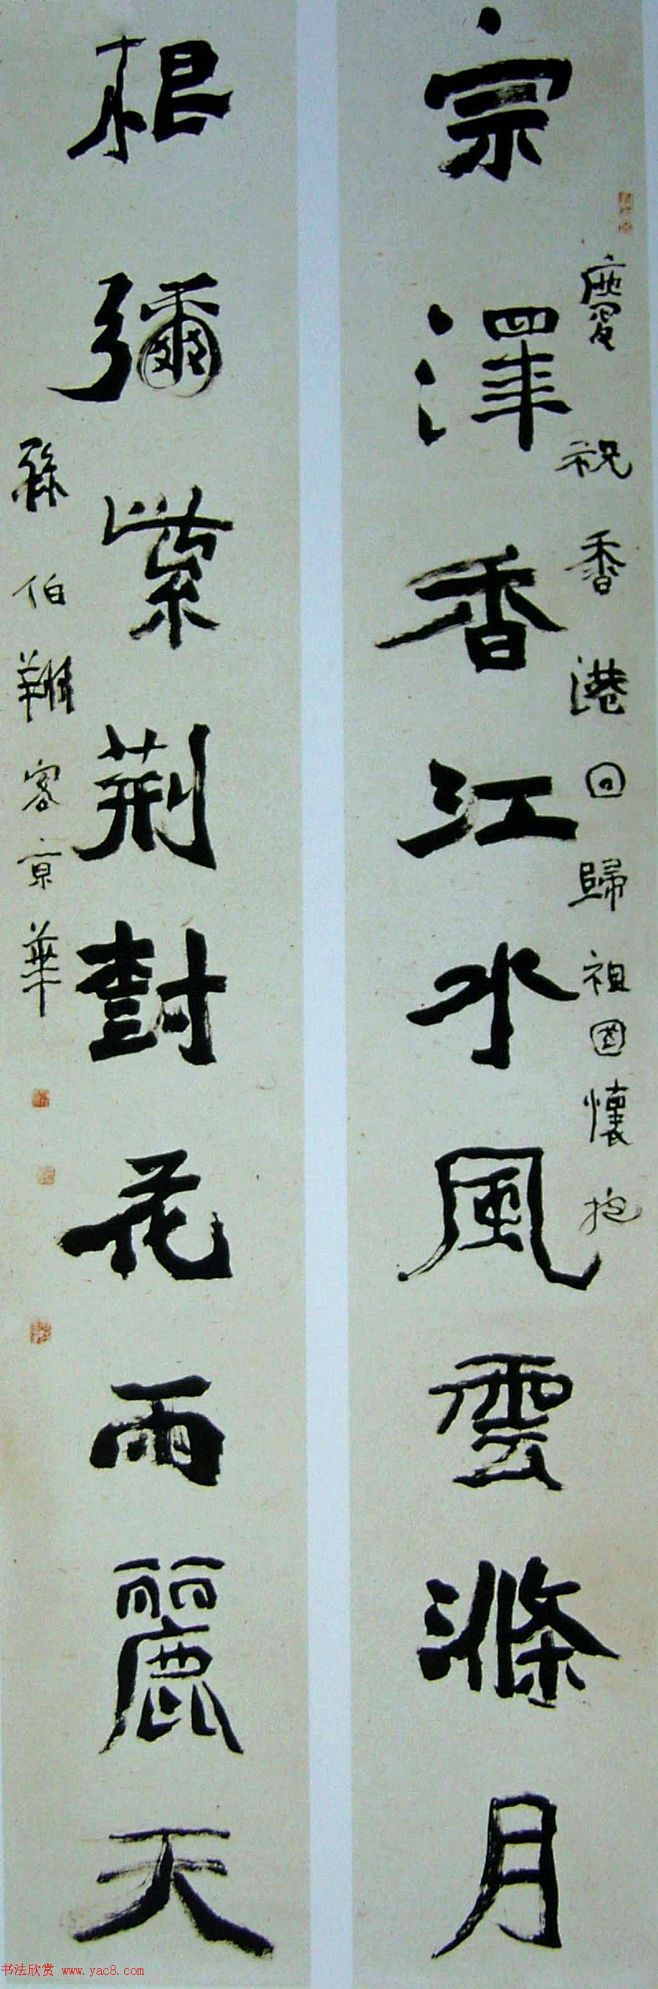 慶祝香港回歸祖国懷抱
宗澤香江水風雲滌月
根彌紫荆對花雨麗天
孫伯翔客京華
书法欣赏 www.yac8.com